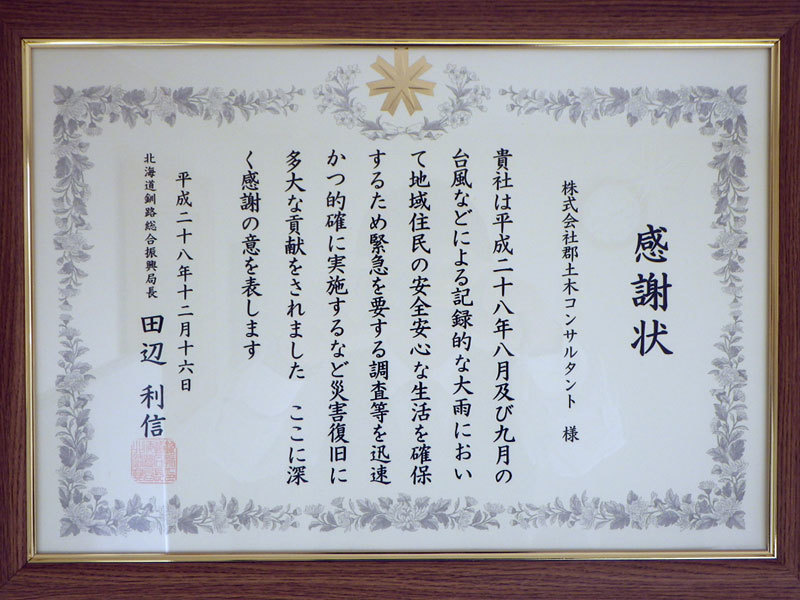 感謝状
株式会社郡土木コンサルタント 様
貴社は平成二十八年八月及び九月の
台風などによる記録的な大雨におい
て地域住民の安全安心な生活を確保
するため緊急を要する調査等を迅速
かつ的確に実施するなど災害復旧に
多大な貢献をされました ここに深
く感謝の意を表します
平成二十八年十二月十六日
北海道釧路総合振興局長 田辺 利信